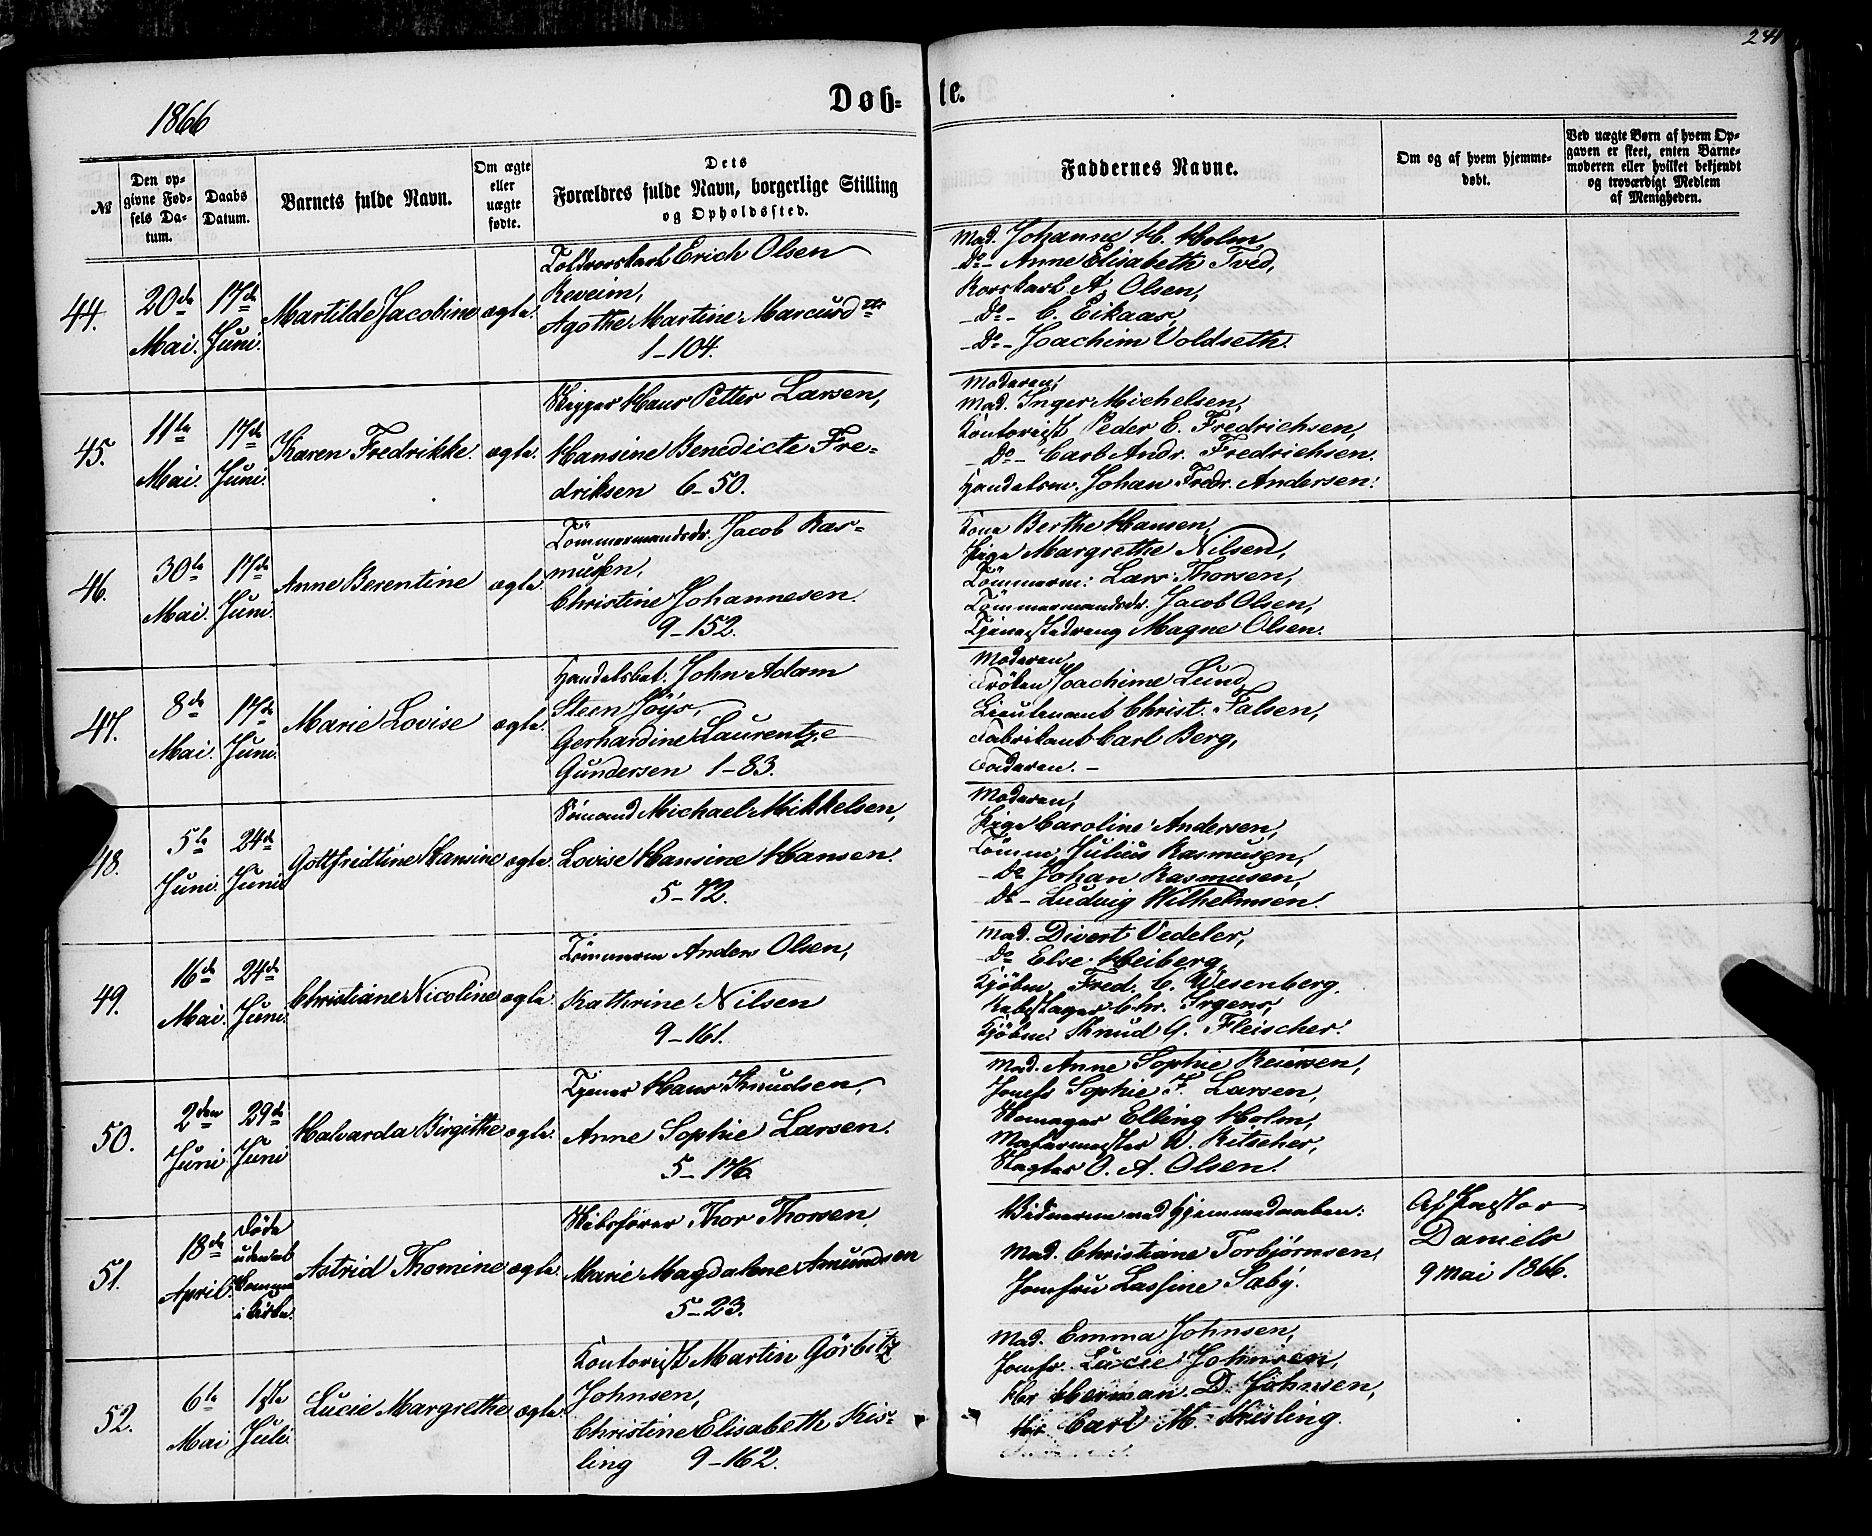 241
1866
Døb-
te.
№
Den op-
givne Fød-
sels Da-
tum.
Daabs
Datum.
Barnets fulde Navn.
Om ægte
eller
uægte
fødte.
Dets
Forældres fulde Navn, borgerlige Stilling
og Opholdssted.
Faddernes Navne.
Om og af hvem hjemme-
døbt.
Ved uægte Børn af hvem Op-
gaven er skeet, enten Barne-
moderen eller hvilket bekjendt
og troværdigt Medlem
af Menigheden.
44.
20de
Mai.
17de
Juni.
Martilde Jacobine
ægte.
Erich Olsen
Reveim,
Agothe Martine Marcusdtr
1-104.
Mad. Johanne H. Holm,
Do- Anne Elisabeth Tved,
A. Olsen,
-Do- C. Eikaas,
-Do- Joachim Voldseth.
45.
11te
Mai.
17de
Juni.
Karen Fredrikke.
ægte.
Skipper Hans Petter Larsen,
Hansine Benedicte Fre-
driksen 6-50.
Moderen,
Mad. Inger Michelsen,
Kontorist Peder E. Fredrichsen,
-Do- Carl Andr. Fredrichsen.
Handelsm. Johan Fredr. Andersen.
46.
30te
Mai.
17de
Juni.
Anne Berentine
ægte.
Tömmermandsdr. Jacob Ras-
musen,
Christine Johannesen.
9-152.
Kone Berthe Hansen,
Pige Margrethe Nilsen,
Tömmerm: Lars Thorsen,
Tömmermandsdr. Jacob Olsen,
Tjenestedreng Magne Olsen.
47.
8de
Mai.
17de
Juni.
Marie Lovise
ægte.
Handelsbet. John Adam
Steen Jöys,
Gerhardine Laurentze
Gundersen 1-83.
Moderen,
Fröken Joachime Lund,
Lieutenant Christ. Falsen,
Fabrikant Carl Berg,
Faderen. -
48.
5te
Juni.
24de
Juni
Gottfridtine Hansine
ægte.
Sömand Michael Mikkelsen,
Lovise Hansine Hansen.
5-72.
Moderen,
Pige Caroline Andersen,
Tömm. Julius Rasmusen,
-Do Johan Rasmusen,
Do- Ludvig Wilhelmsen.
49.
16de
Mai.
24de
Juni.
Christiane Nicoline
ægte.
Tömmerm Anders Olsen,
Kathrine Nilsen
9-161.
Mad. Divert Vedeler,
-Do Else Heiberg,
Kjöbm. Fred. C. Wesenberg.
Rebslager Chr. Irgens,
Kjöbm. Knud G. Fleischer.
50.
2den
Juni
29de
Juni
Halvarda Birgithe
ægte.
Tjener Hans Knudsen,
Anne Sophie Larsen.
5-176.
Mad. Anne Sophie Reiersen,
Jomfr Sophie F. Larsen,
Skomager Elling Holm,
Malermester W. Ritscher,
Slagter O. A. Olsen.
51.
18de
April.
Døde
uden at
komme
i Kirke.
Astrid Thomine
ægte.
Skibsförer Thor Thorsen,
Marie Magdalene Amundsen
5-23.
Vidnerne ved Hjemmedaaben:
Mad. Christiane Torbjørnsen,
Jomfru Lassine Sæby.
Af Pastor
Daniels
9 Mai 1866.
52.
6te
Mai
1ste
Juli.
Lucie Margrethe
ægte.
Kontorist Martin Görbitz
Johnsen,
Christine Elisabeth Kis-
ling 9-162.
Mad. Emma Johnsen,
Jomfr. Lucie Johnsen,
Hr Herman. D. Johnsen,
Hr Carl M. Kiisling.